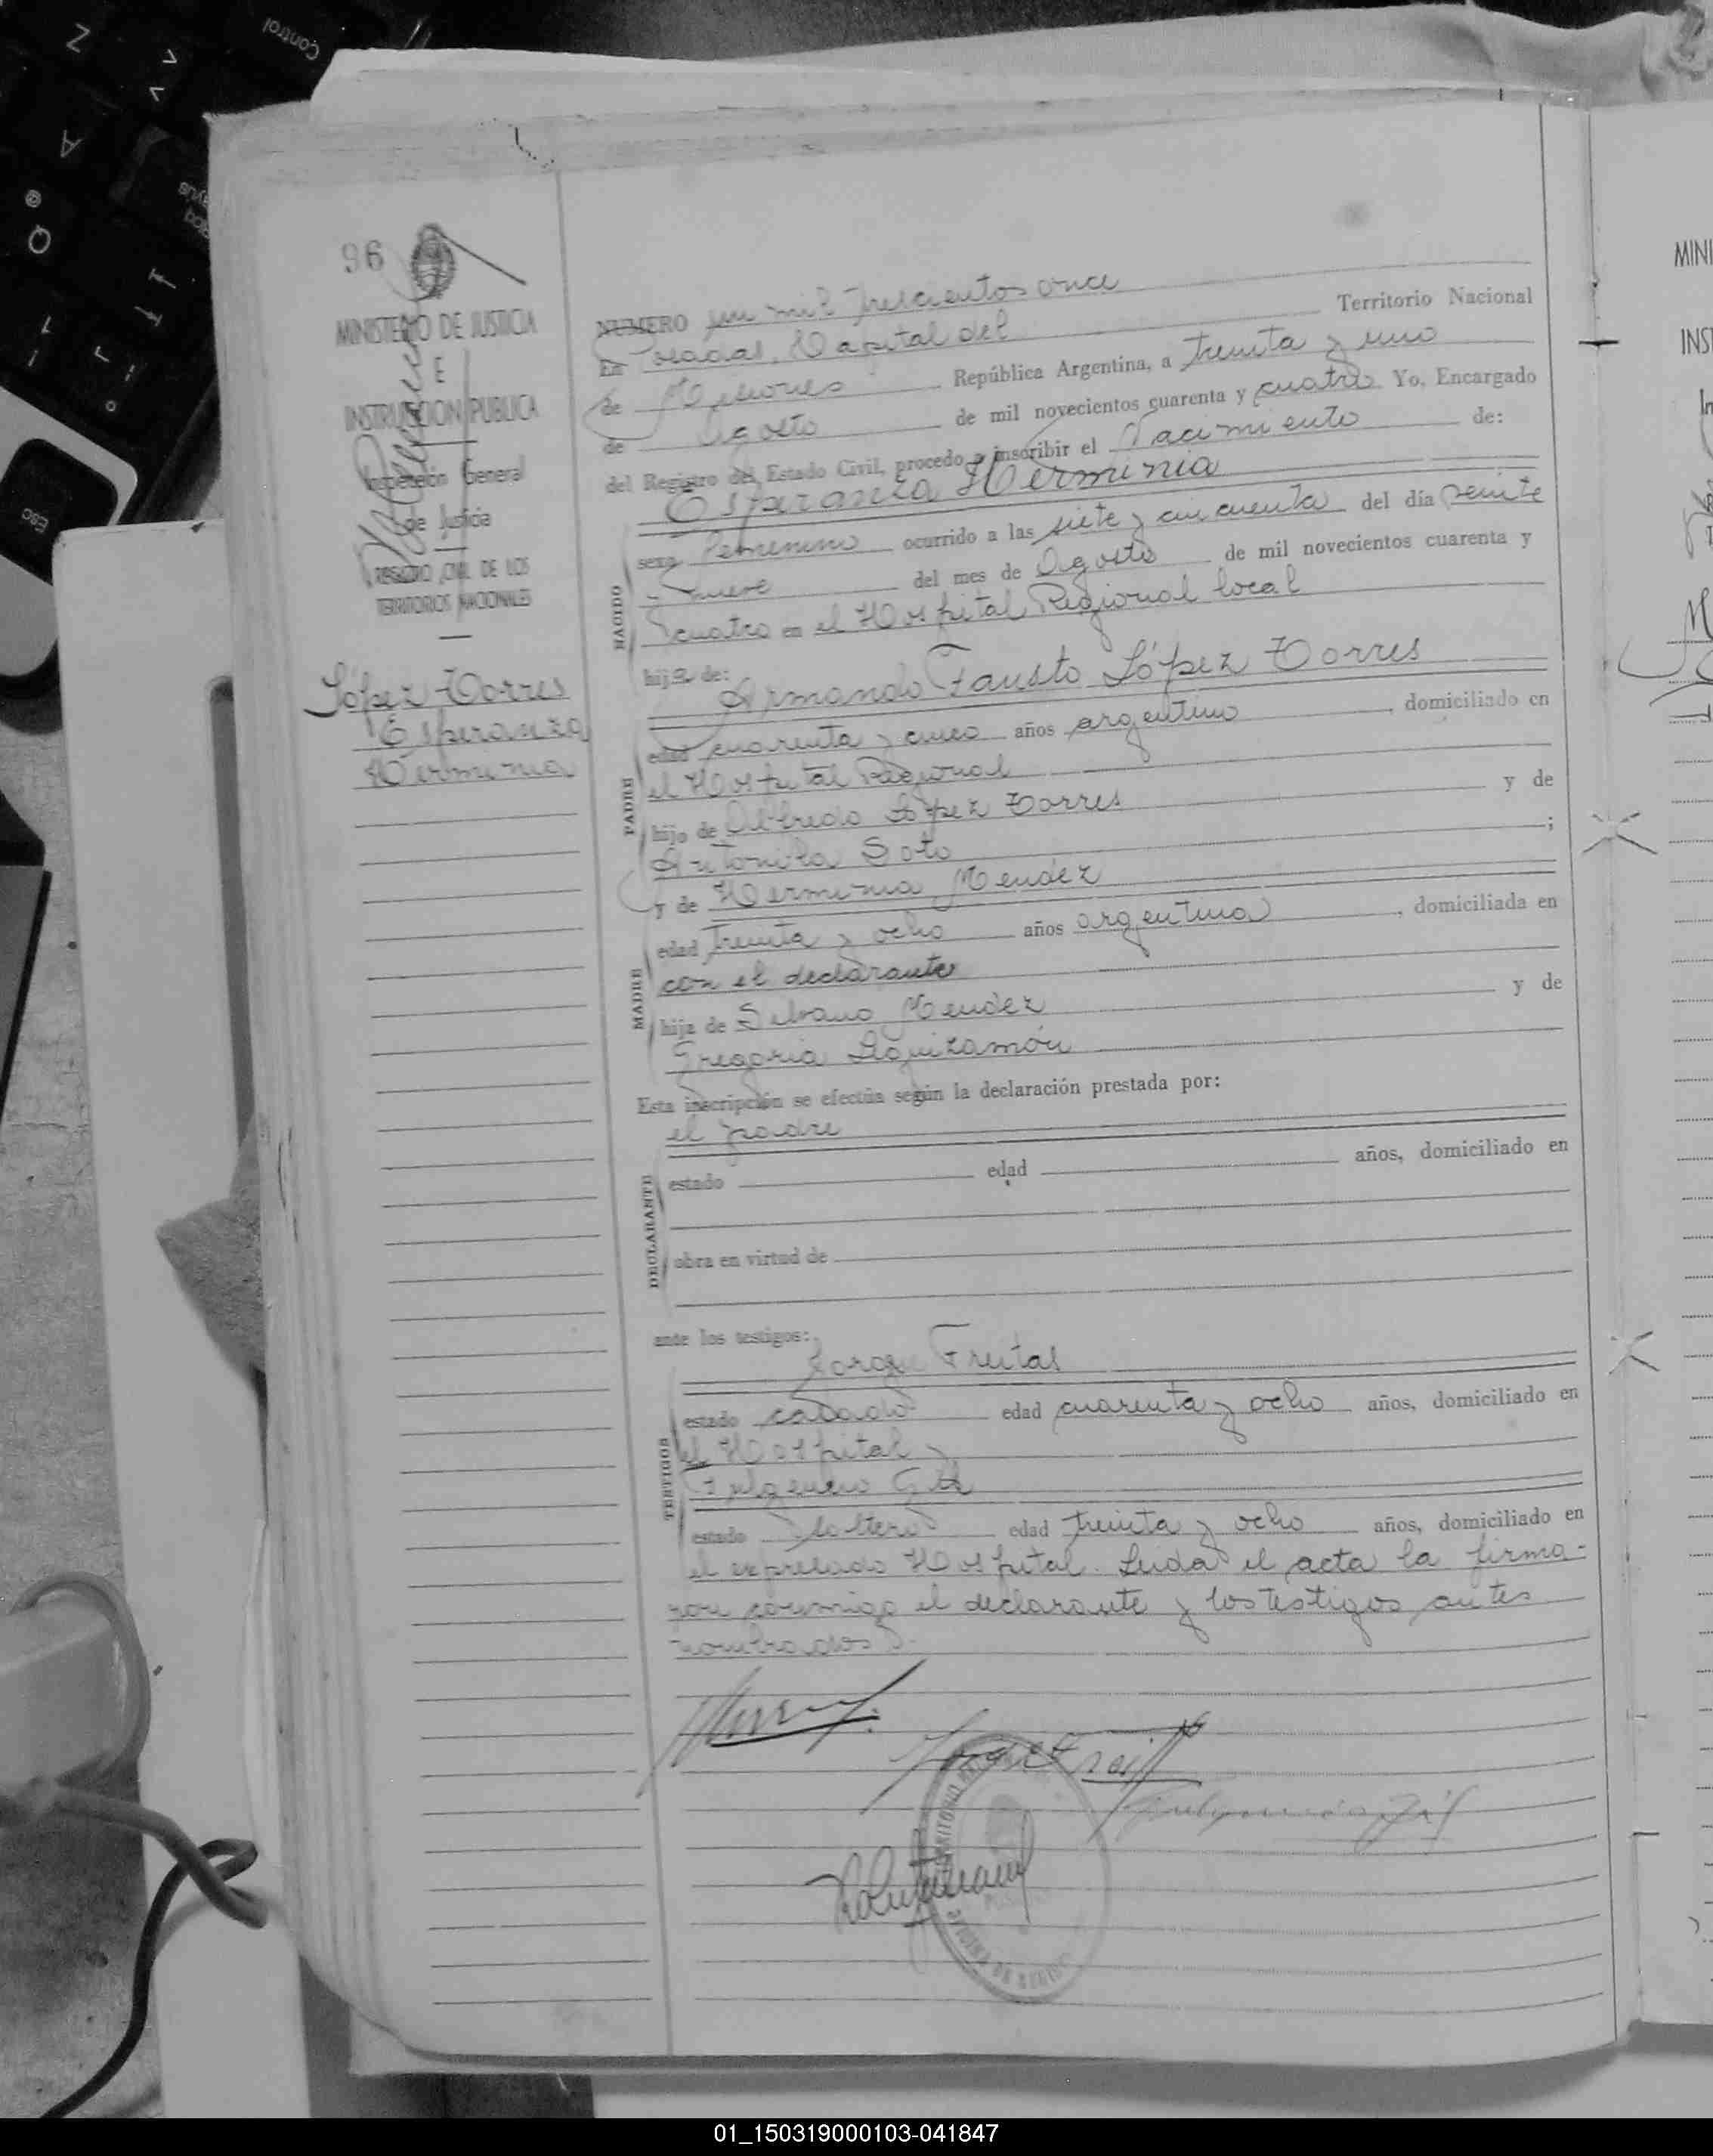 96
MINISTERIO DE JUSTICIA
E
INSTRUCCION PUBLICA
Inspección General
de Justicia
REGISTRO CIVIL DE LOS
TERRITORIOS NACIONALES
López Torres
Esperanza
Herminia
NUMERO un mil trescientos once
En Posadas, Capital del Territorio Nacional
de Misiones República Argentina, a treinta y uno
de Agosto de mil novecientos cuarenta y cuatro. Yo, Encargado
del Registro del Estado Civil, procedo a inscribir el Nacimiento de:
Esperanza Herminia
NACIDO
sexo femenino ocurrido a las siete y cincuenta del día veinte
nueve del mes de Agosto de mil novecientos cuarenta y
cuatro en el Hospital Regional local
hija de:
Armando Fausto López Torres
PADRE
edad cuarenta y cinco años argentino, domiciliado en
el Hospital Regional
hijo de Alfredo López Torres y de
Antonina Soto;
y de Herminia Mendez
MADRE
edad treinta y ocho años argentina, domiciliada en
con el declarante
hija de Silvano Mendez y de
Gregoria Leguizamón
Esta inscripción se efectúa según la declaración prestada por:
el padre
DECLARANTE
estado edad años, domiciliado en
obra en virtud de
ante los testigos:
Jorge Freitas
TESTIGOS
estado casado edad cuarenta y ocho años, domiciliado en
el Hospital y
Fulgencio Gil
estado soltero edad treinta y ocho años, domiciliado en
el expresado Hospital. Leída el acta la firma-
ron conmigo el declarante y los testigos antes
nombrados.
Control
Esc
MINI
INS
01_150319000103-041847